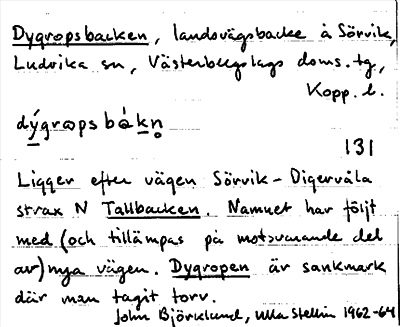 Dygropsbacken, landsvägsbacke å Sörvik,
Ludvika sn, Västerbergslags doms. tg,
Kopp. l.
dýgrops bákn̥
131
Ligger efter vägen Sörvik - Digervåla
strax N Tallbacken. Namnet har följt
med (och tillämpas på motsvarande del
av) nya vägen. Dygropen är sankmark
där man tagit torv.
John Björklund, Ulla Stellin 1962-64